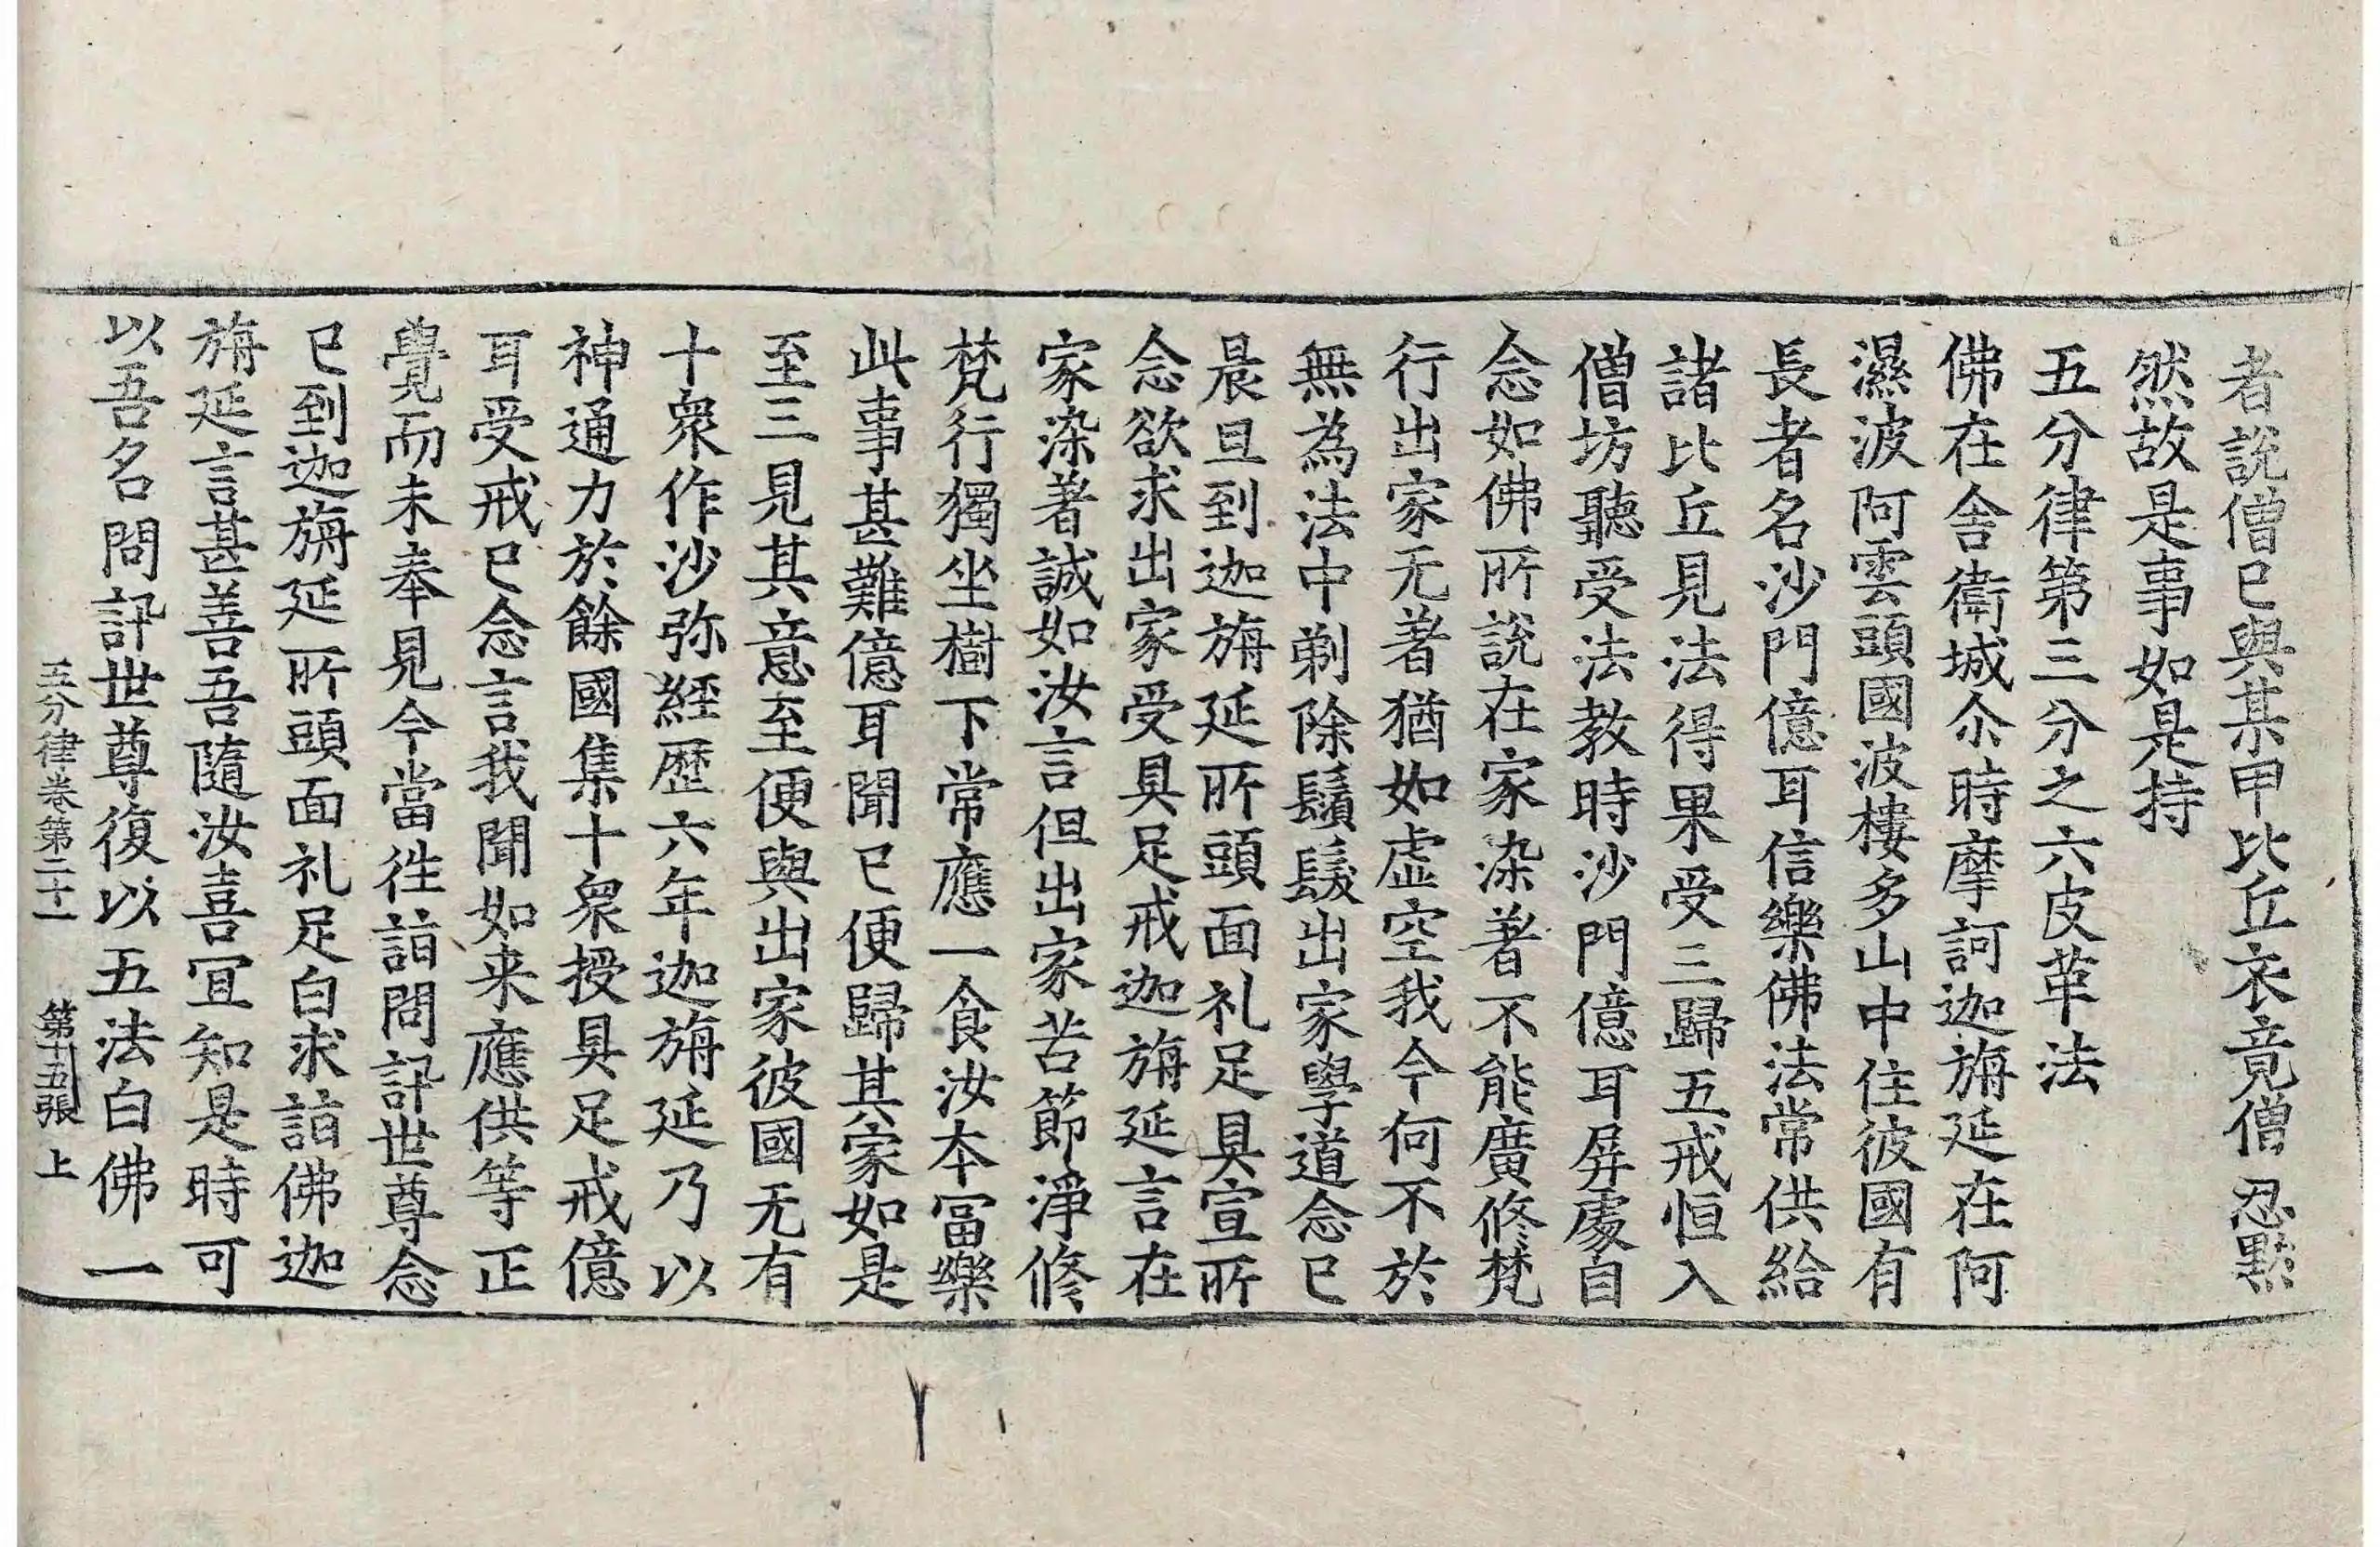 者說僧已與某甲比丘衣竟僧忍默
然故是事如是持
五分律第三分之六皮革法
佛在舎衛城尒時摩訶迦旃延在阿
濕波阿雲頭國波樓多山中住彼國有
長者名沙門億耳信樂佛法常供給
諸比丘見法得果受三歸五戒恒入
僧坊聽受法教時沙門億耳屏處自
念如佛所說在家染著不能廣修梵
行出家无著猶如虛空我今何不於
無為法中剃除鬚髮出家學道念已
晨旦到迦旃延所頭面礼足具宣所
念欲求出家受具足戒迦旃延言在
家染著誠如汝言但出家苦節淨修
梵行獨坐樹下常應一食汝本冨樂
此事甚難億耳聞已便歸其家如是
至三見其意至便與出家彼國无有
十衆作沙弥經歷六年迦旃延乃以
神通力於餘國集十衆授具足戒億
耳受戒已念言我聞如来應供等正
覺而未奉見今當往詣問訊世尊念
已到迦旃延所頭面礼足白求詣佛迦
旃延言甚善吾隨汝喜冝知是時可
以吾名問訊世尊復以五法白佛一
五分律卷第二十一 第十五張 上